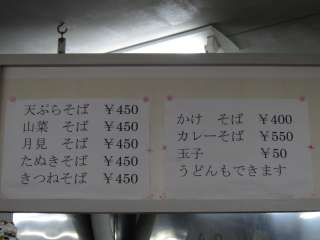 天ぷらそば ￥450
山菜　そば ￥450
月見　そば ￥450
たぬきそば ￥450
きつねそば ￥450
かけ　そば ￥400
カレーそば ￥550
玉子 ￥50
うどんもできます